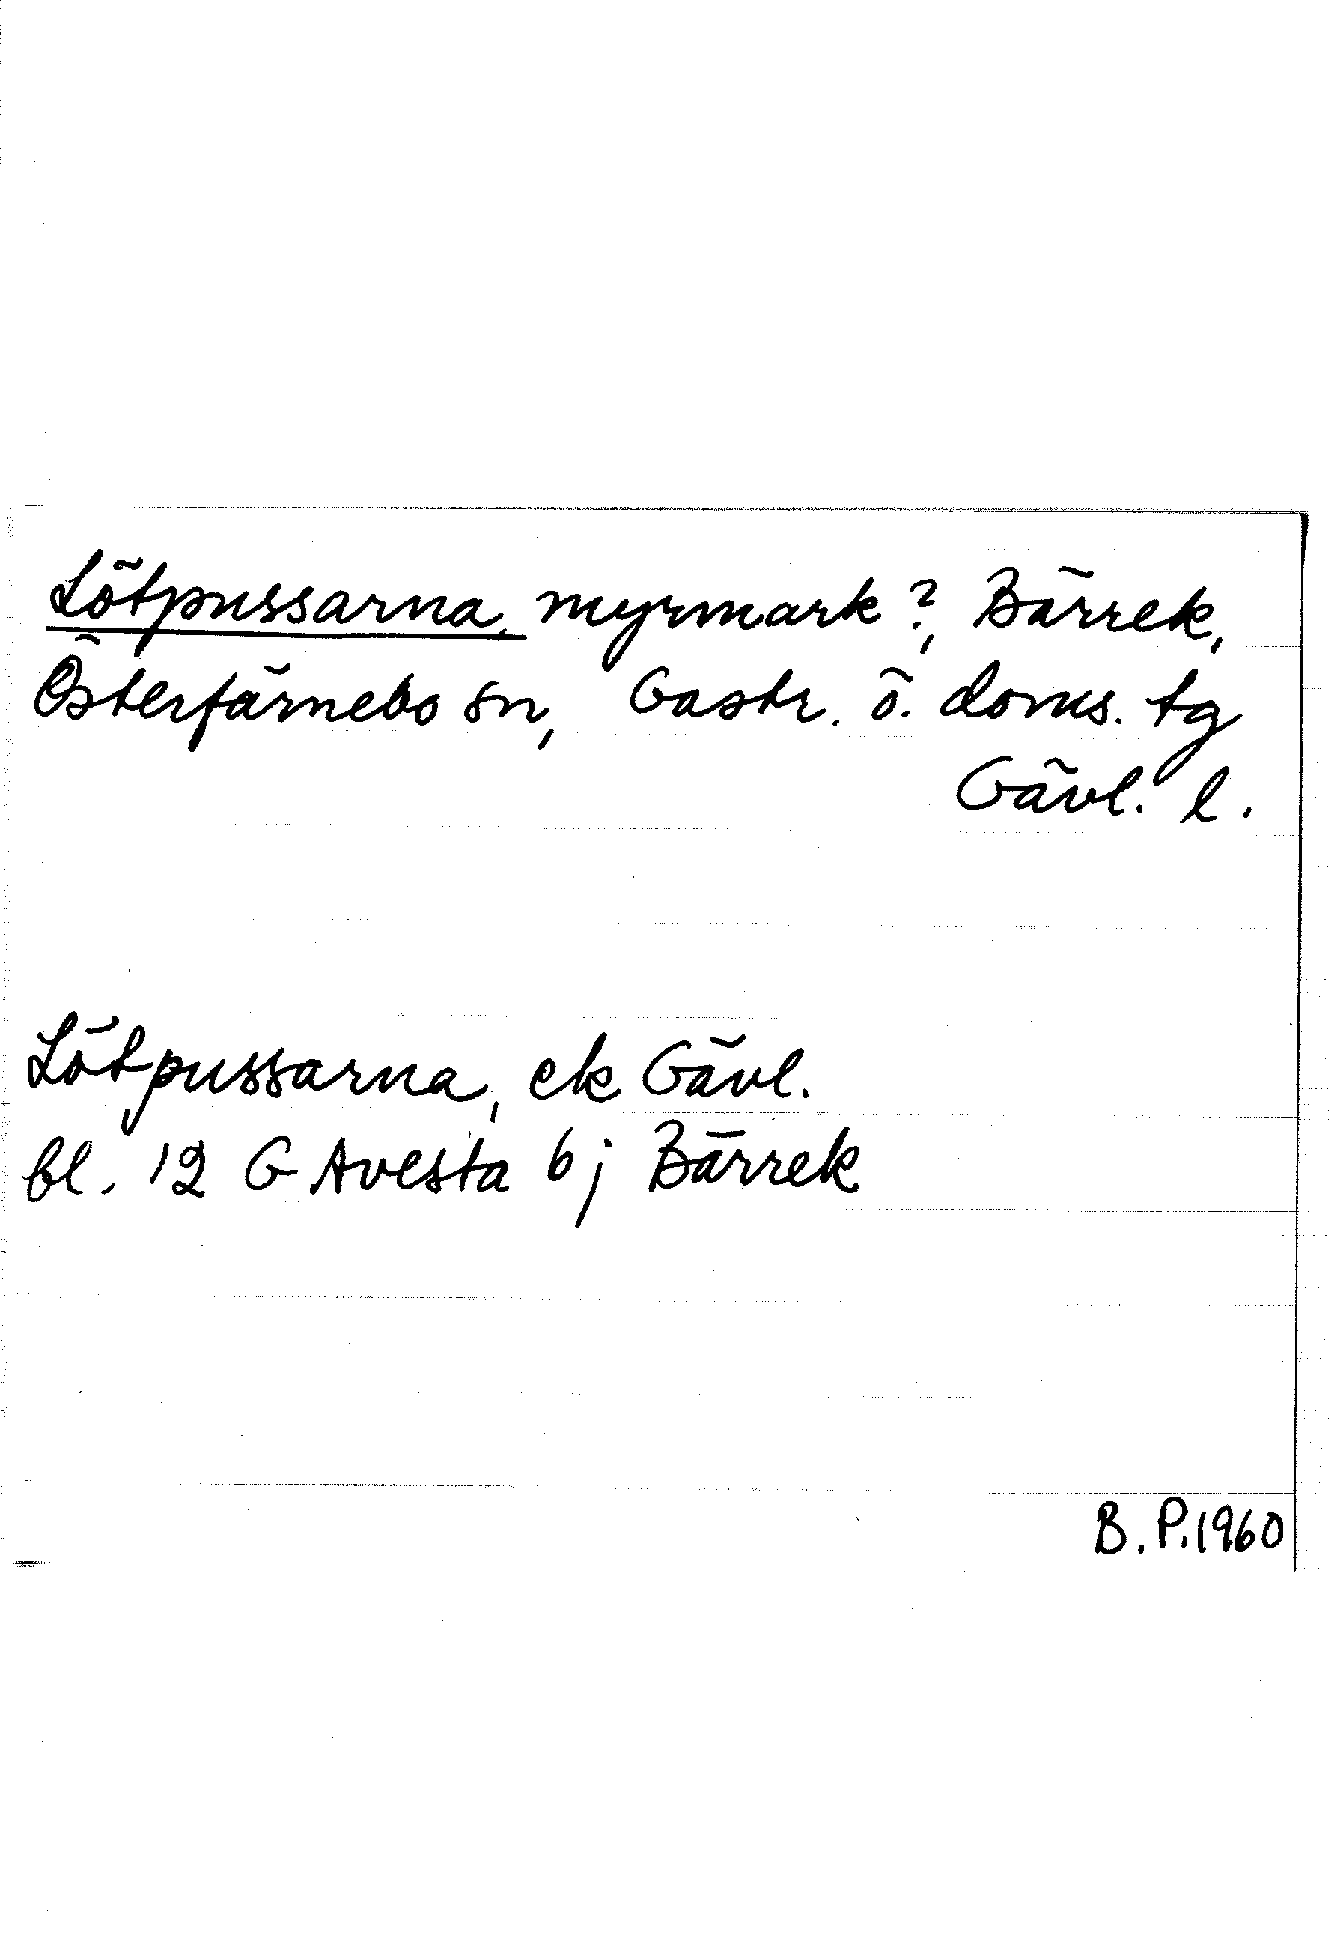 Lötpussarna, myrmark?, Bärrek,
Österfärnebo sn, Gastr. ö. doms. tg
Gävl. l.
Lötpussarna, ek Gävl.
bl. 12 G Avesta bj Bärrek
B. P. 1960